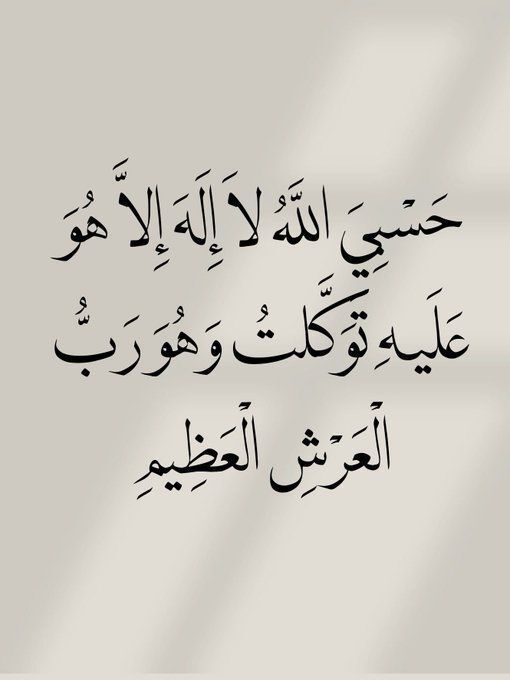 حَسْبِيَ اللَّهُ لاَ إِلَهَ إِلاَّ هُوَ
عَلَيهِ تَوَكَّلتُ وَهُوَ رَبُّ
الْعَرْشِ الْعَظِيمِ